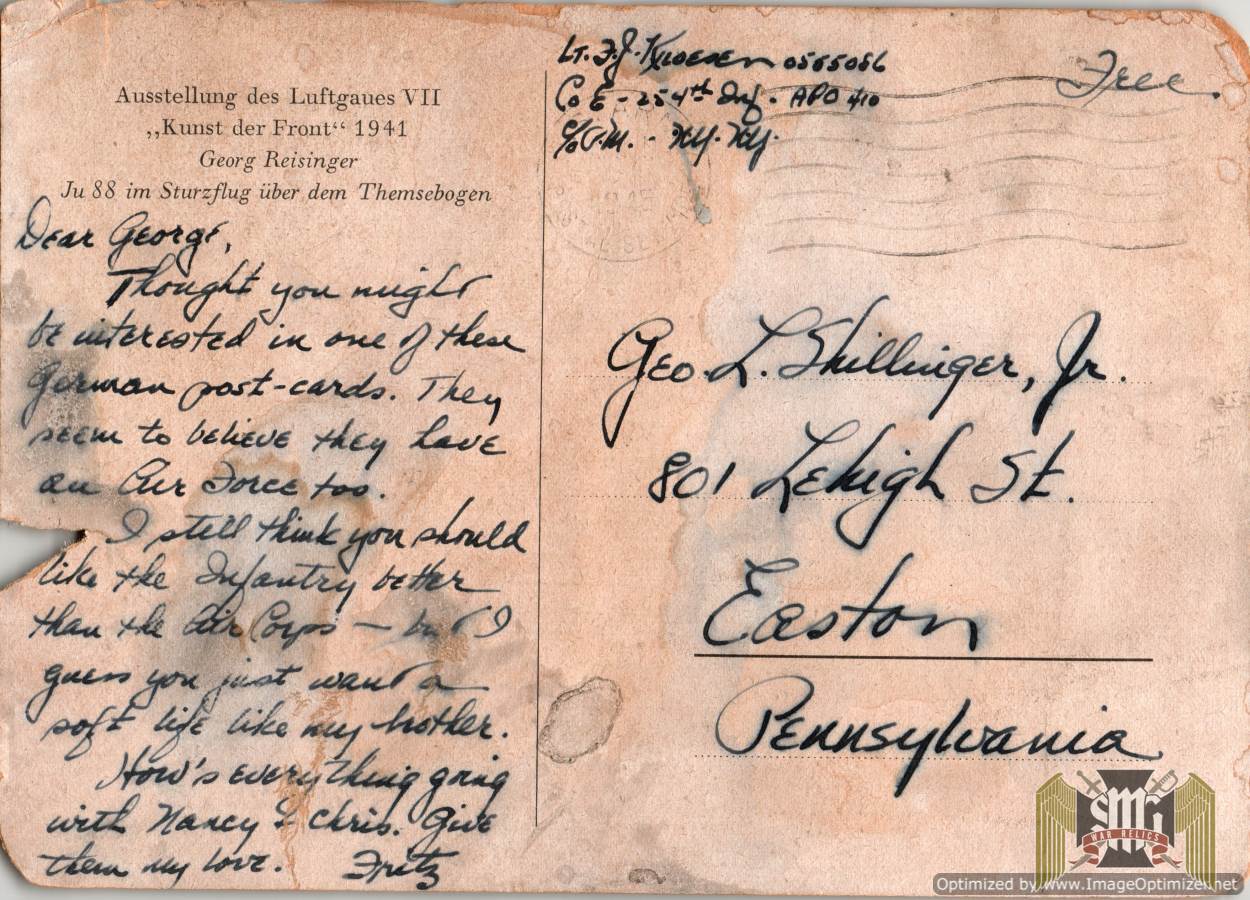 Ausstellung des Luftgaues VII
„Kunst der Front“ 1941
Georg Reisinger
Ju 88 im Sturzflug über dem Themsebogen
Dear George,
Thought you might
be interested in one of these
German post-cards. They
seem to believe they have
an Air Force too.
I still think you should
like the Infantry better
than the Air Corps — but I
guess you just want a
soft life like my brother.
How's everything going
with Nancy & Chris. Give
them my love. Fritz
Lt. F. J. 0565056
Co E - 254th Inf. - APO 410
c/o P.M. - N.Y. N.Y.
Free.
Geo. L. Shillinger, Jr.
801 Lehigh St.
Easton
Pennsylvania
SMG
WAR RELICS
Optimized by www.ImageOptimizer.net